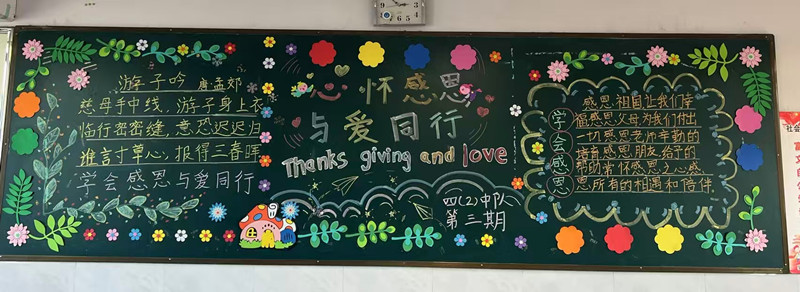 游子吟 唐孟郊
慈母手中线，游子身上衣
临行密密缝，意恐迟迟归
谁言寸草心，报得三春晖
学会感恩与爱同行
心怀感恩
与爱同行
Thanks giving and love
四(2)中队
第三期
学会感恩
感恩祖国让我们幸
福感恩父母为我们付出
一切感恩老师辛勤的
培育感恩朋友给予的
帮助常怀感恩之心感
恩所有的相遇和陪伴